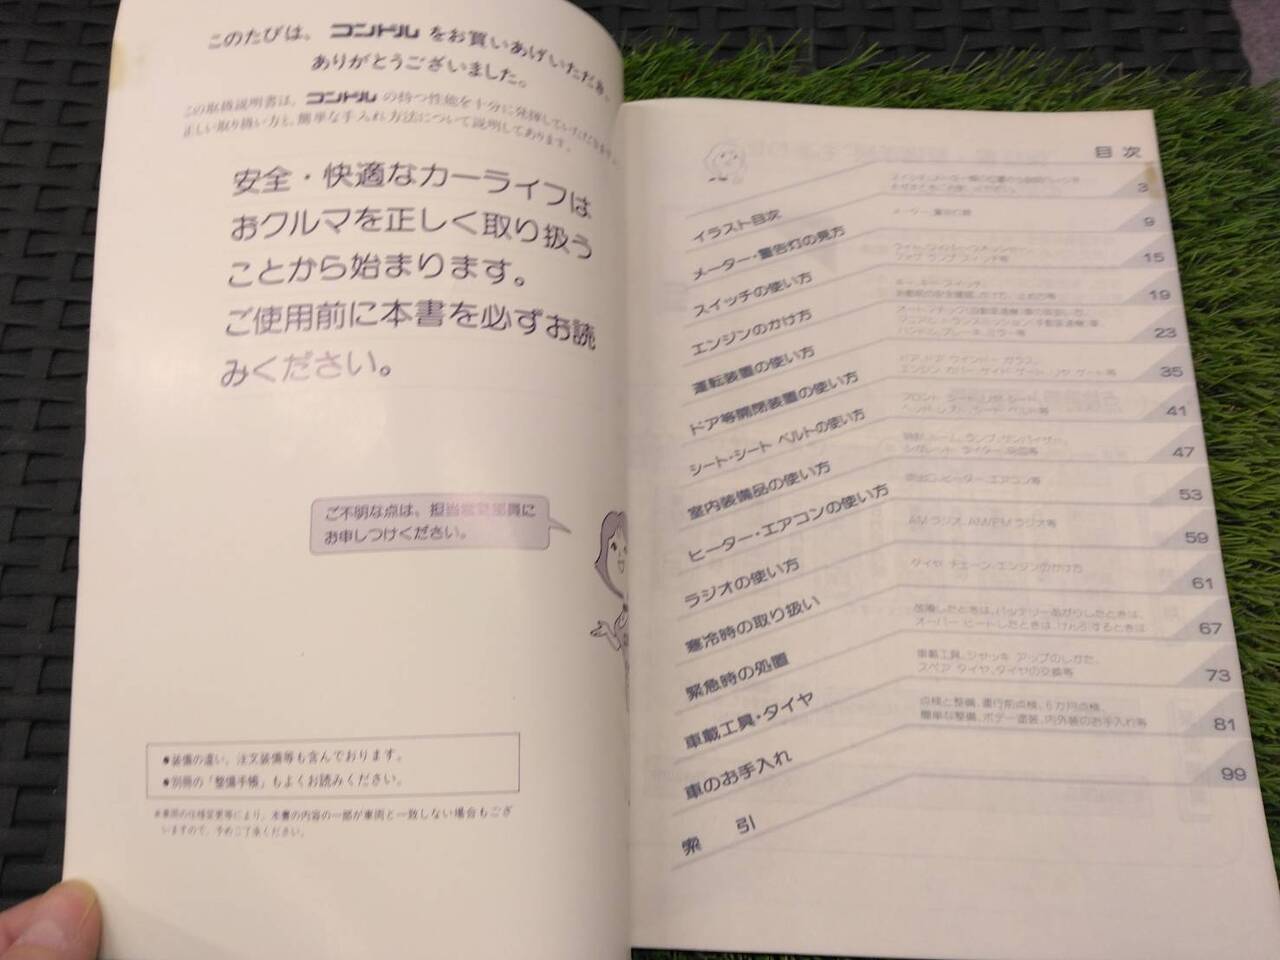 このたびは、コンドルをお買いあげいただき、
ありがとうございました。
この取扱説明書は、コンドルの持つ性能を十分に発揮していただく
正しい取り扱い方と、簡単な手入れ方法について説明してあります。
安全・快適なカーライフは
おクルマを正しく取り扱う
ことから始まります。
ご使用前に本書を必ずお読
みください。
ご不明な点は、担当営業部員に
お申しつけください。
●装備の違い、注文装備等も含んでおります。
●別冊の「整備手帳」もよくお読みください。
※車両の仕様変更等により、本書の内容の一部が車両と一致しない場合もござ
いますので、予めご了承ください。
目次
イラスト目次 3
メーター・警告灯の見方 メーター、警告灯類 9
スイッチの使い方 15
エンジンのかけ方 キー、キースイッチ、 19
運転装置の使い方 23
ハンドル、ブレーキ、ミラー等
ドア等開閉装置の使い方 ドア、ドア ウインドー ガラス、 35
エンジン カバー、サイド ゲート、リヤ ゲート等
シート・シート ベルトの使い方 フロント シート、リヤ シート、 41
ヘッド レスト、シート ベルト等
室内装備品の使い方 47
シガレット ライター、灰皿等
ヒーター・エアコンの使い方 吹出口、ヒーター、エアコン等 53
ラジオの使い方 AMラジオ、AM/FMラジオ等 59
寒冷時の取り扱い タイヤ チェーン、エンジンのかけ方 61
緊急時の処置 故障したときは、バッテリーあがりしたときは、 67
オーバー ヒートしたときは、けん引するときは
車載工具・タイヤ 車載工具、ジャッキ アップのしかた、 73
スペア タイヤ、タイヤの交換等
車のお手入れ 点検と整備、運行前点検、6カ月点検、 81
簡単な整備、ボデー塗装、内外装のお手入れ等
索引 99